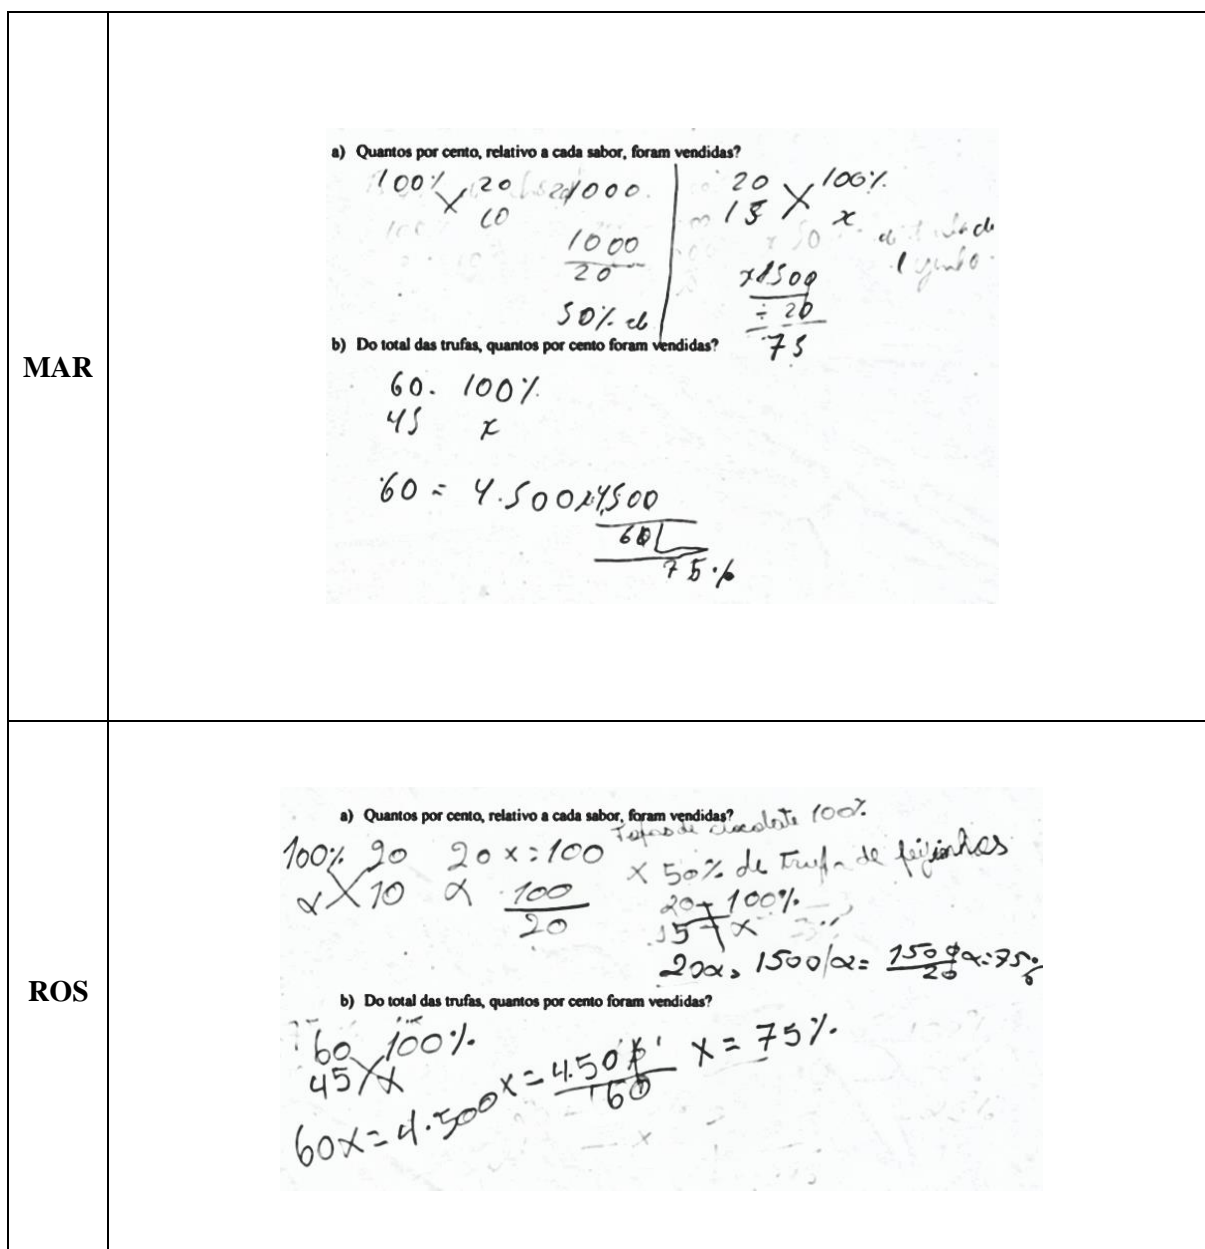 MAR
a) Quantos por cento, relativo a cada sabor, foram vendidas?
100% 20 1000
10
1000
20
50% de
20 100%
15 x
x 1500
÷ 20
75
b) Do total das trufas, quantos por cento foram vendidas?
60. 100%
45 x
60 = 4.500 x 4,500
60
75%
ROS
a) Quantos por cento, relativo a cada sabor, foram vendidas?
de chocolate 100%
100% 20 20x=100
x 10 x 100
20
x 50% de trufa de
20 100%
15 x
20x = 1500 x = 1500 x=75%
20
b) Do total das trufas, quantos por cento foram vendidas?
60 100%
45 x
60x=4.500 x = 4.500 x = 75%
60